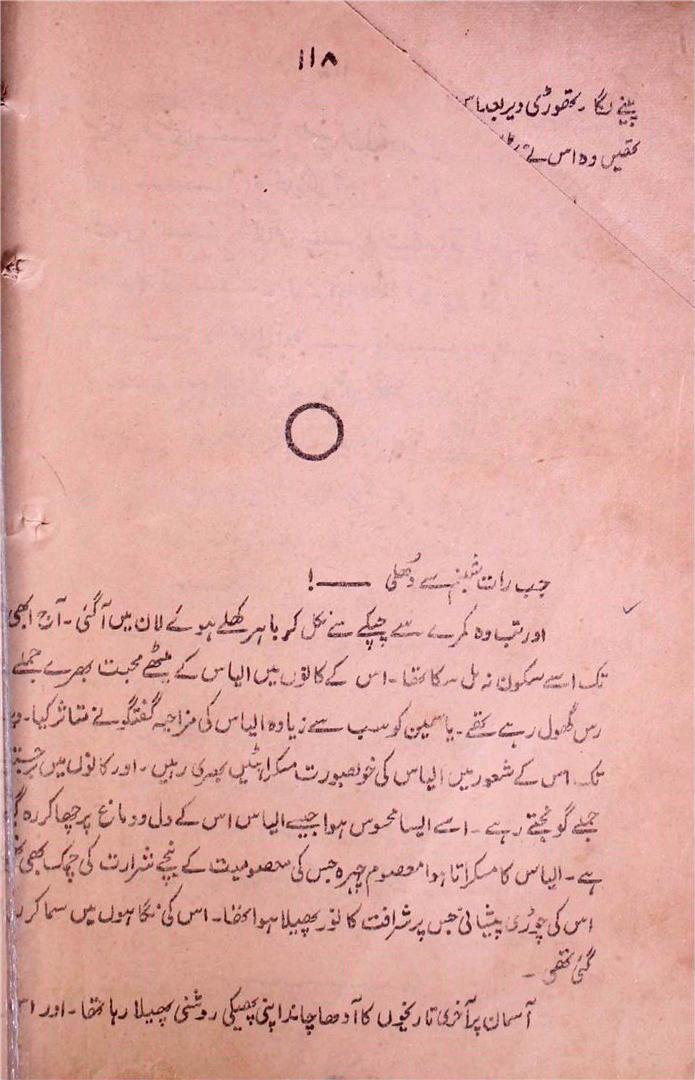 ۱۱۸
پینے لگا۔ تھوڑی دیر بعد
تھیں وہ اس نے
جب رات شبنم سے دُھلی ——!
اور تب وہ کمرے سے چپکے سے نکل کر باہر کھلے ہوئے لان میں آ گئی۔ آج ابھی
تک اسے سکون نہ مل سکا تھا۔ اس کے کانوں میں الیاس کے میٹھے محبت بھرے جملے
رس گھول رہے تھے۔ یاسمین کو سب سے زیادہ الیاس کی مزاحیہ گفتگو نے متاثر کیا۔
تک اس کے شعور میں الیاس کی خوبصورت مسکراہٹیں بکھری رہیں۔ اور کانوں میں
جملے گونجتے رہے۔ اسے ایسا محسوس ہوا جیسے الیاس اس کے دل و دماغ پر چھا کر رہ
ہے۔ الیاس کا مسکراتا ہوا معصوم چہرہ جس کی معصومیت کے نیچے شرارت کی چمک بھی
اس کی چوڑی پیشانی جس پر شرافت کا نور پھیلا ہوا تھا۔ اس کی نگاہوں میں سما کر
گئی تھی۔
آسمان پر آخری تاریخوں کا آدھا چاند اپنی پھیکی روشنی پھیلا رہا تھا۔ اور